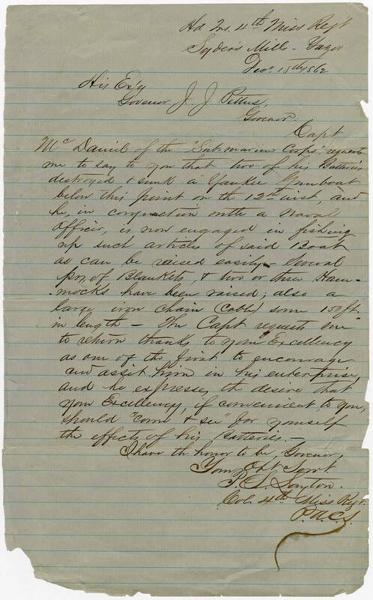 Hd Qrs. 4th Miss Regt
Snyder's Mill - Yazoo
Decr. 15th 1862
His Ex'y
Govenor J. J. Pettus,
Govenor
Capt
McDaniel of the "Submarine Corps" requests
me to say to you that two of his Batteries
destroyed & sunk a Yankee Gunboat
below this point on the 12th inst, and
he, in conjunction with a Naval
Officer, is now engaged in fishing
up such articles of said Boat
as can be raised easily - Several
prs of Blankets, & two or three Ham-
mocks have been raised; also a
large iron chain Cable som 150 ft.
in length - The Capt requests me
to return thanks to your Excellency
as one of the first to encourage
and assist him in his enterprise,
and he expresses the desire that
your Excellency, if convenient to you,
should "Come & see" for yourself
the effects of his Batteries.-
I have the honor to be, Govenor,
Your Obt Servt
P. S. Layton
Col. 4th Miss Regt.
P.A.C.S.